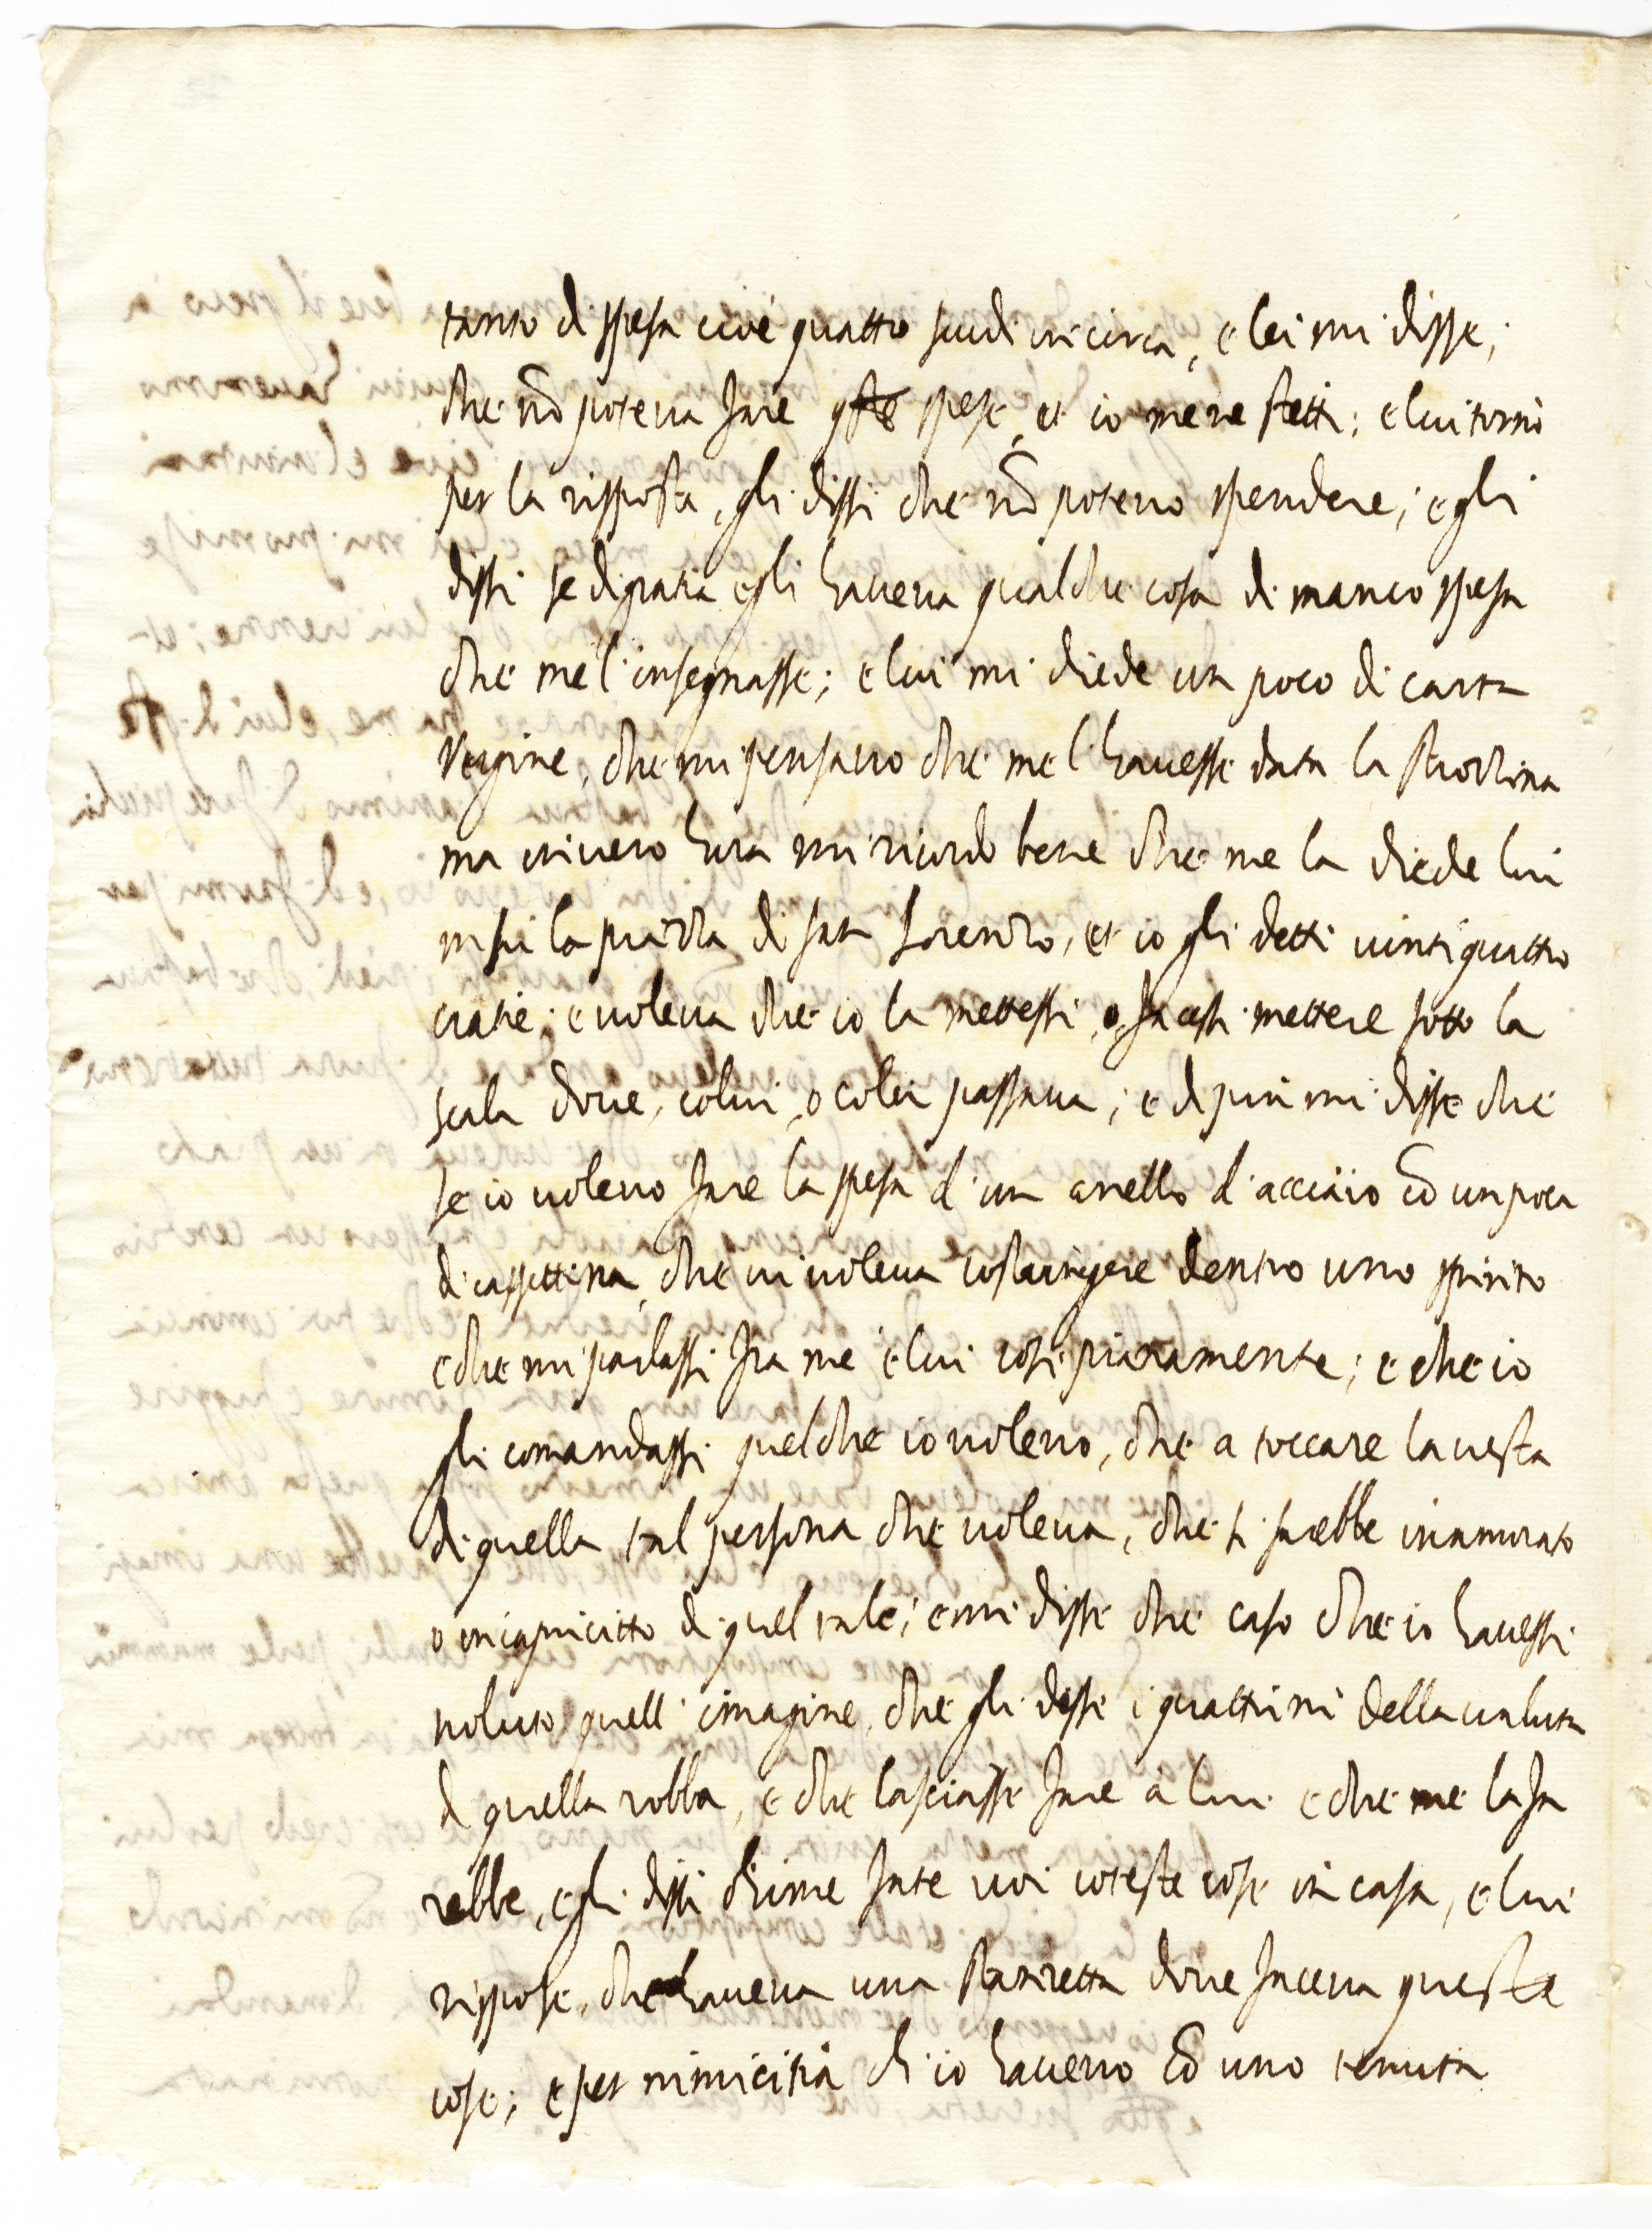 tanto di spesa cioè quattro scudi in circa, e lei mi disse,
che nō poteva fare qste spese, et io me ne stetti; e lui tornò
per la risposta, gli dissi che nō potevo spendere; e gli
dissi se di gratia egli haveva qualche cosa di manco spesa
che me l'insegnasse; e lui mi diede un poco di carta
vergine, che mi pensavo che me l'havesse data la Strozzina
ma in vero hora mi ricordo bene che me la diede lui
in su la piazza di San Lorenzo, et io gli detti vinti quattro
cratie; e voleva che io la mettessi, o facessi mettere sotto la
scala dove, colui, o colei passava; e di più mi disse che
se io volevo fare la spesa d'un anello d'acciaio cō un poca
di cassettina, che vi voleva costringere dentro uno spirito
e che mi parlassi fra me e lui così pianamente; e che io
gli comandassi quel che io volevo, che a toccare la vesta
di quella tal persona che voleva, che si sarebbe inamorato
o incapricito di quel tale; e mi disse che caso che io havessi
voluto quell'imagine, che gli dessi i quattrini della valuta
di quella robba, e che lasciassi fare a lui e che me la fa
rebbe, e gli dissi dime fate voi coteste cose in casa, e lui
rispose, che haveva una stanzetta dove faceva queste
cose; e per nimicitia ch'io havevo cō uno tenuta